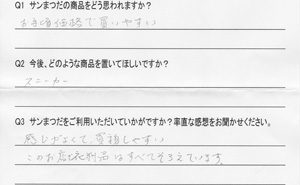 Q1 サンまつだの商品をどう思われますか?
お手頃価格で買いやすい
Q2 今後、どのような商品を置いてほしいですか?
スニーカー
Q3 サンまつだをご利用いただいていかがですか?率直な感想をお聞かせください。
感じがよくて、買物しやすい
このお店で衣料品はすべてそろえています。